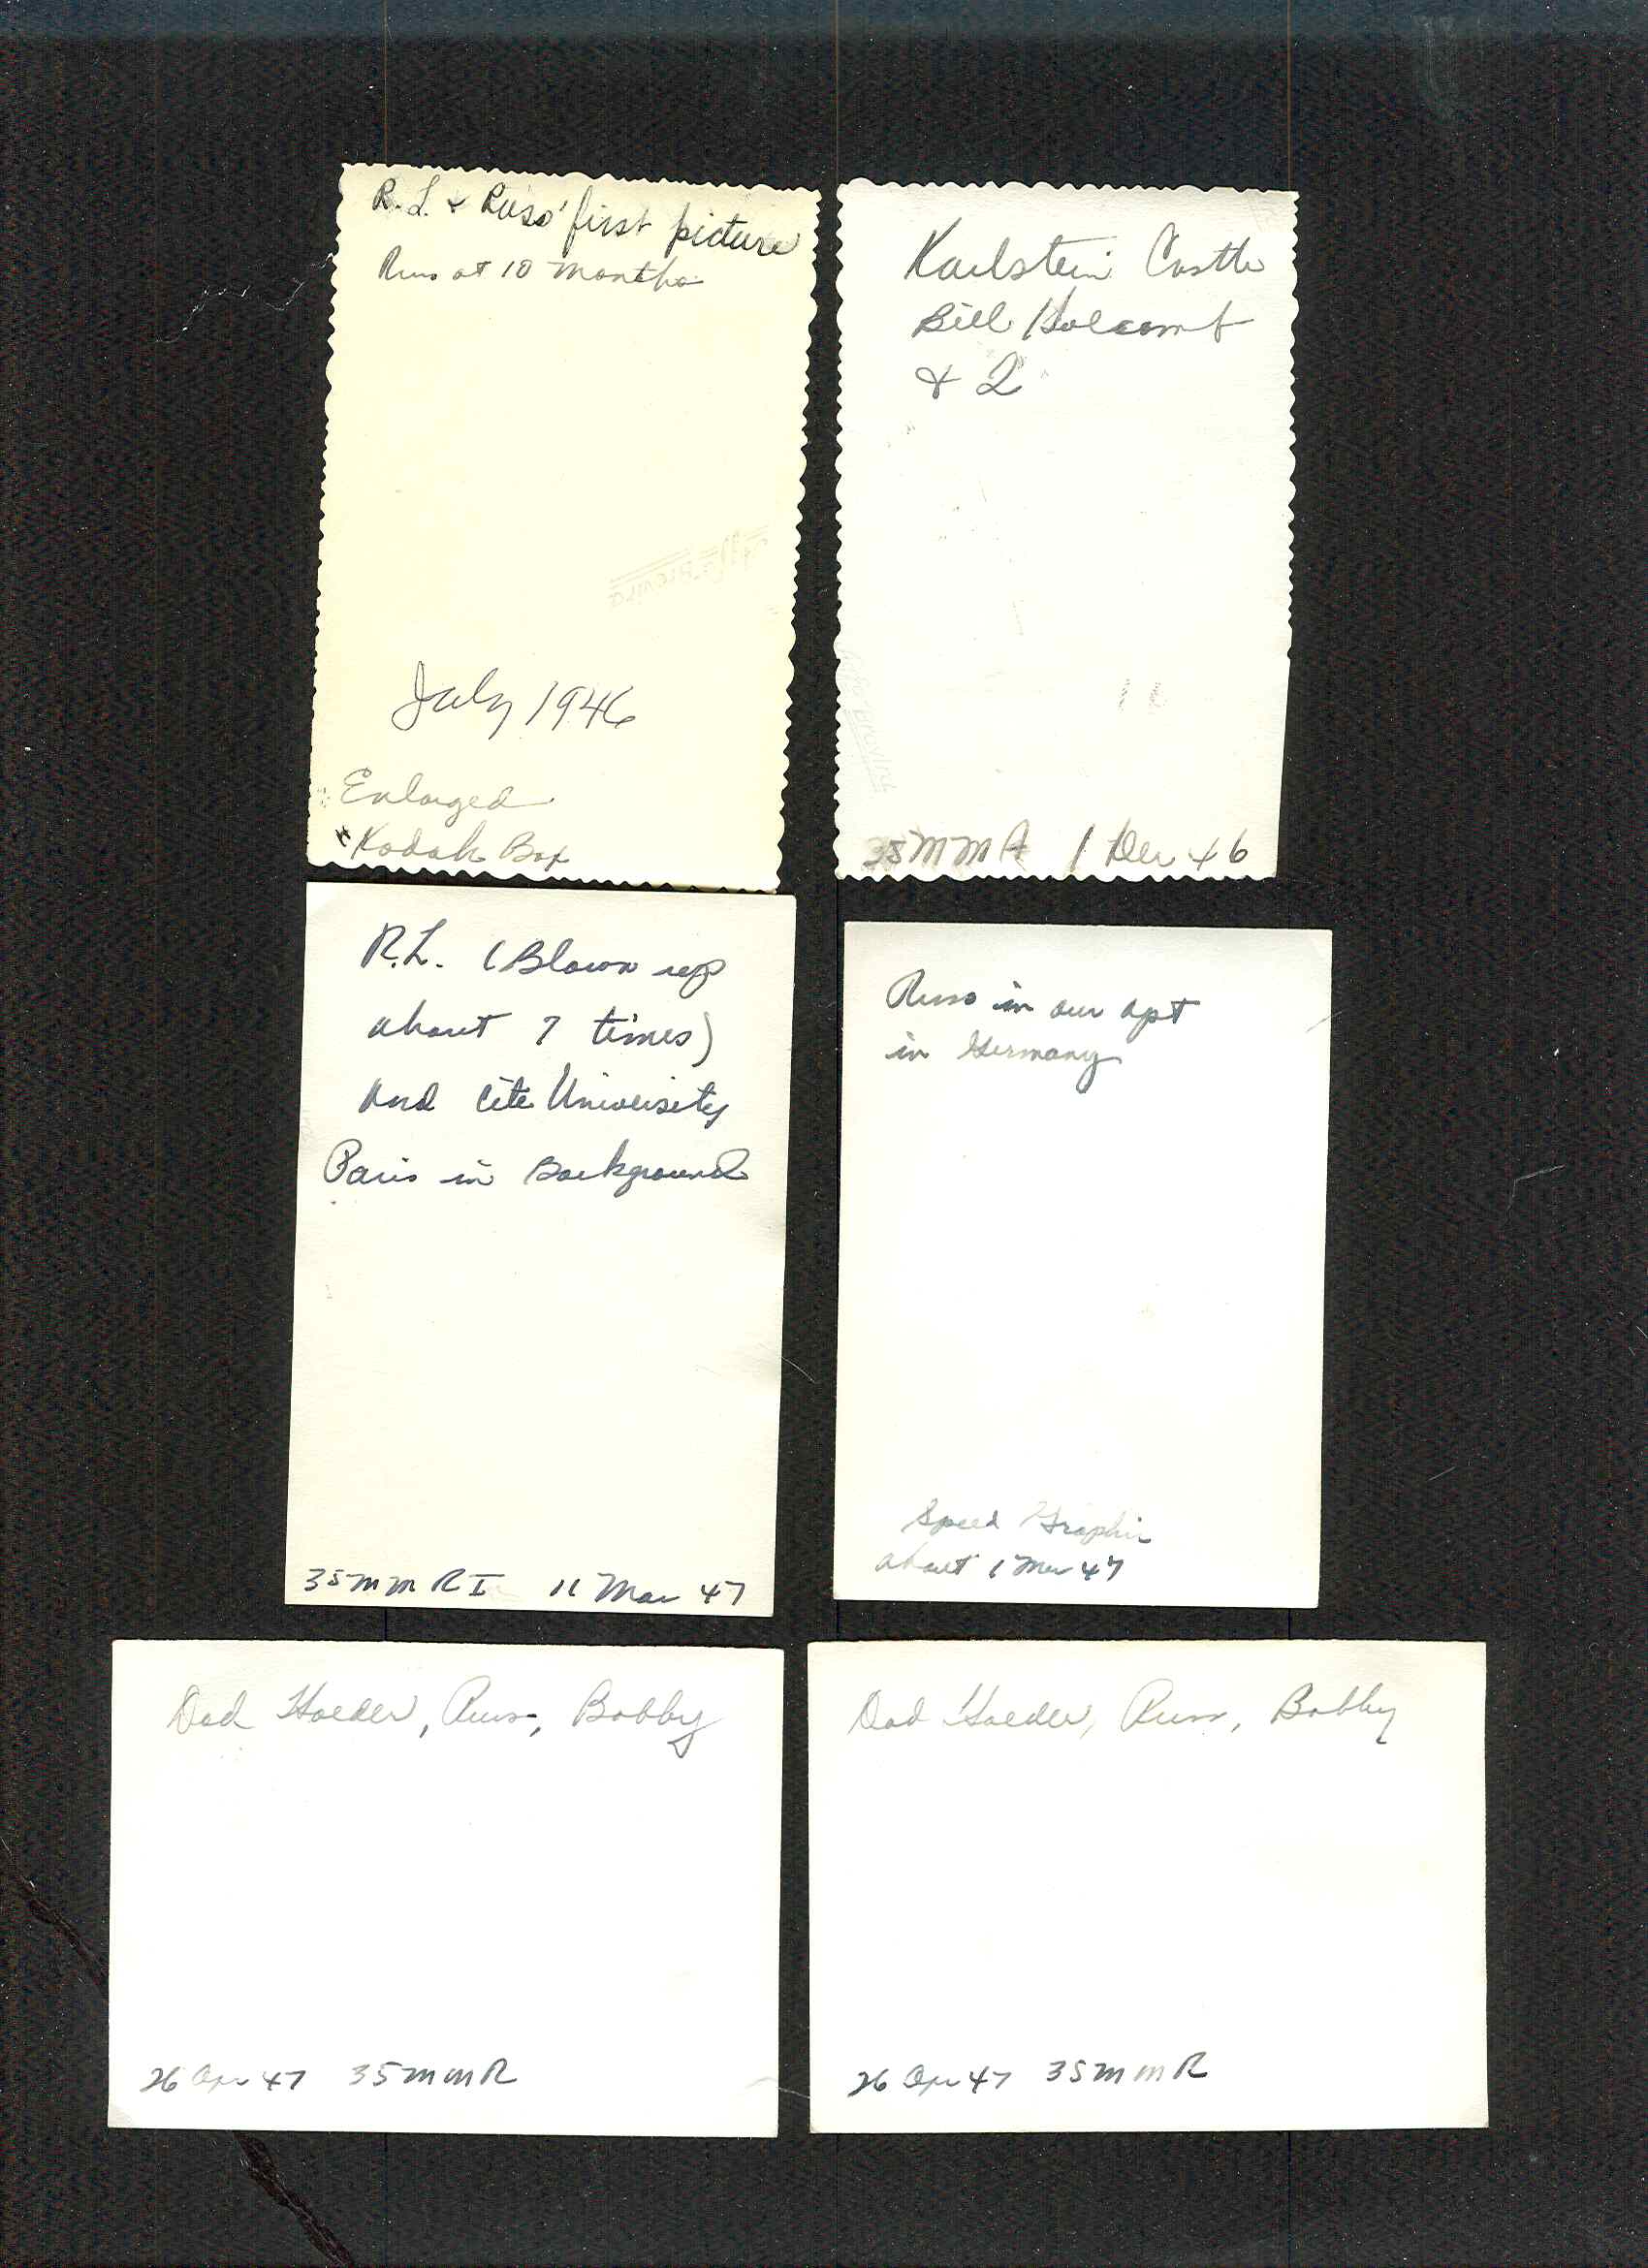 R.L. & Russ' first picture
Russ at 10 months
July 1946
Enlarged
Kodak Box
Karlstein Castle
Bill Holcomb
& I
35MM A 1 Dec 46
R.L. (Blown up
about 7 times)
and Cite University
Paris in Background
35mm R I 11 Mar 47
Russ in our apt
in Germany
Speed Graphic
about 1 Mar 47
Dad Hoeder, Russ, Bobby
26 Apr 47 35mm R
Dad Hoeder, Russ, Bobby
26 Apr 47 35mm R